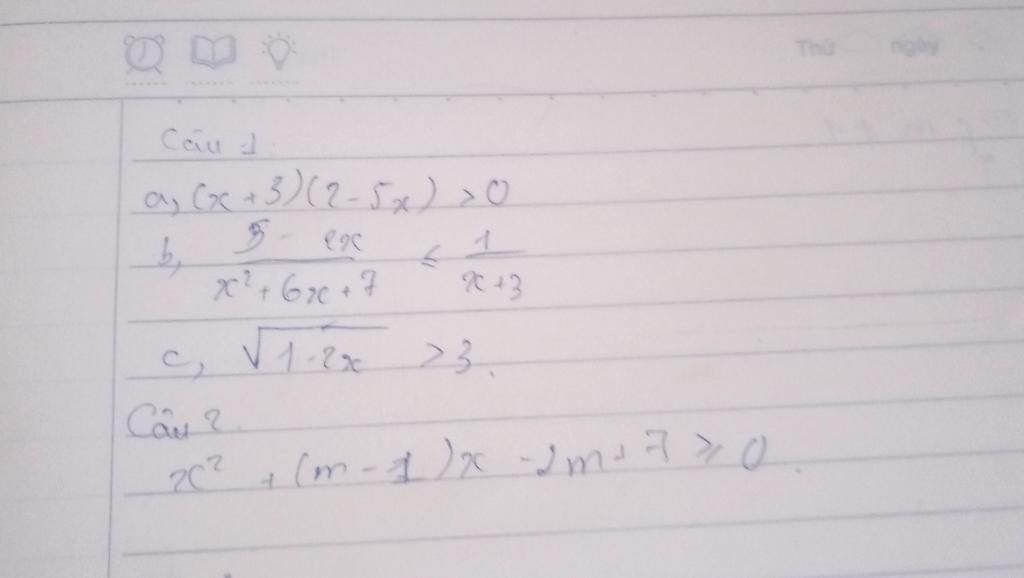 Thứ ngày
Câu 1
a, (x+3)(2-5x) > 0
b, \frac{5 - 2x}{x² + 6x + 7} ≤ \frac{1}{x+3}
c, √(1-2x) > 3.
Câu 2.
x² + (m-1)x - 2m + 7 ≥ 0.